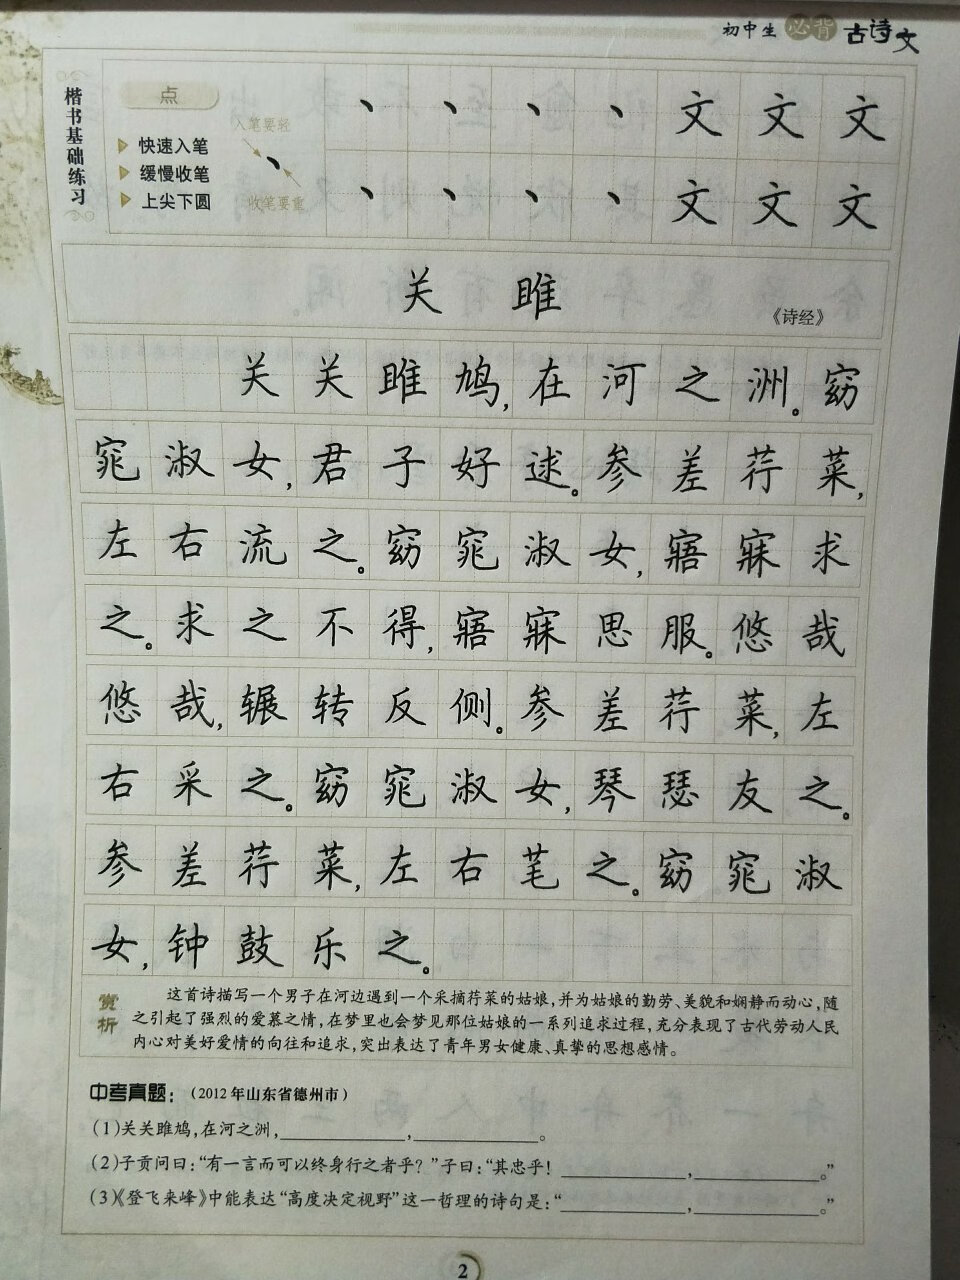 初中生 必背 古诗文
楷书基础练习
点
快速入笔
缓慢收笔
上尖下圆
入笔要轻
收笔要重
丶 丶 丶 丶 文 文 文
丶 丶 丶 丶 文 文 文
关 雎
《诗经》
关关雎鸠,在河之洲。窈
窕淑女,君子好逑。参差荇菜,
左右流之。窈窕淑女,寤寐求
之。求之不得,寤寐思服。悠哉
悠哉,辗转反侧。参差荇菜,左
右采之。窈窕淑女,琴瑟友之。
参差荇菜,左右芼之。窈窕淑
女,钟鼓乐之。
赏析
这首诗描写一个男子在河边遇到一个采摘荇菜的姑娘,并为姑娘的勤劳、美貌和娴静而动心,随
之引起了强烈的爱慕之情,在梦里也会梦见那位姑娘的一系列追求过程,充分表现了古代劳动人民
内心对美好爱情的向往和追求,突出表达了青年男女健康、真挚的思想感情。
中考真题:(2012年山东省德州市)
(1)关关雎鸠,在河之洲,____________,____________。
(2)子贡问曰:“有一言而可以终身行之者乎?”子曰:“其忠乎!____________,____________。”
(3)《登飞来峰》中能表达“高度决定视野”这一哲理的诗句是:“____________,____________。”
2